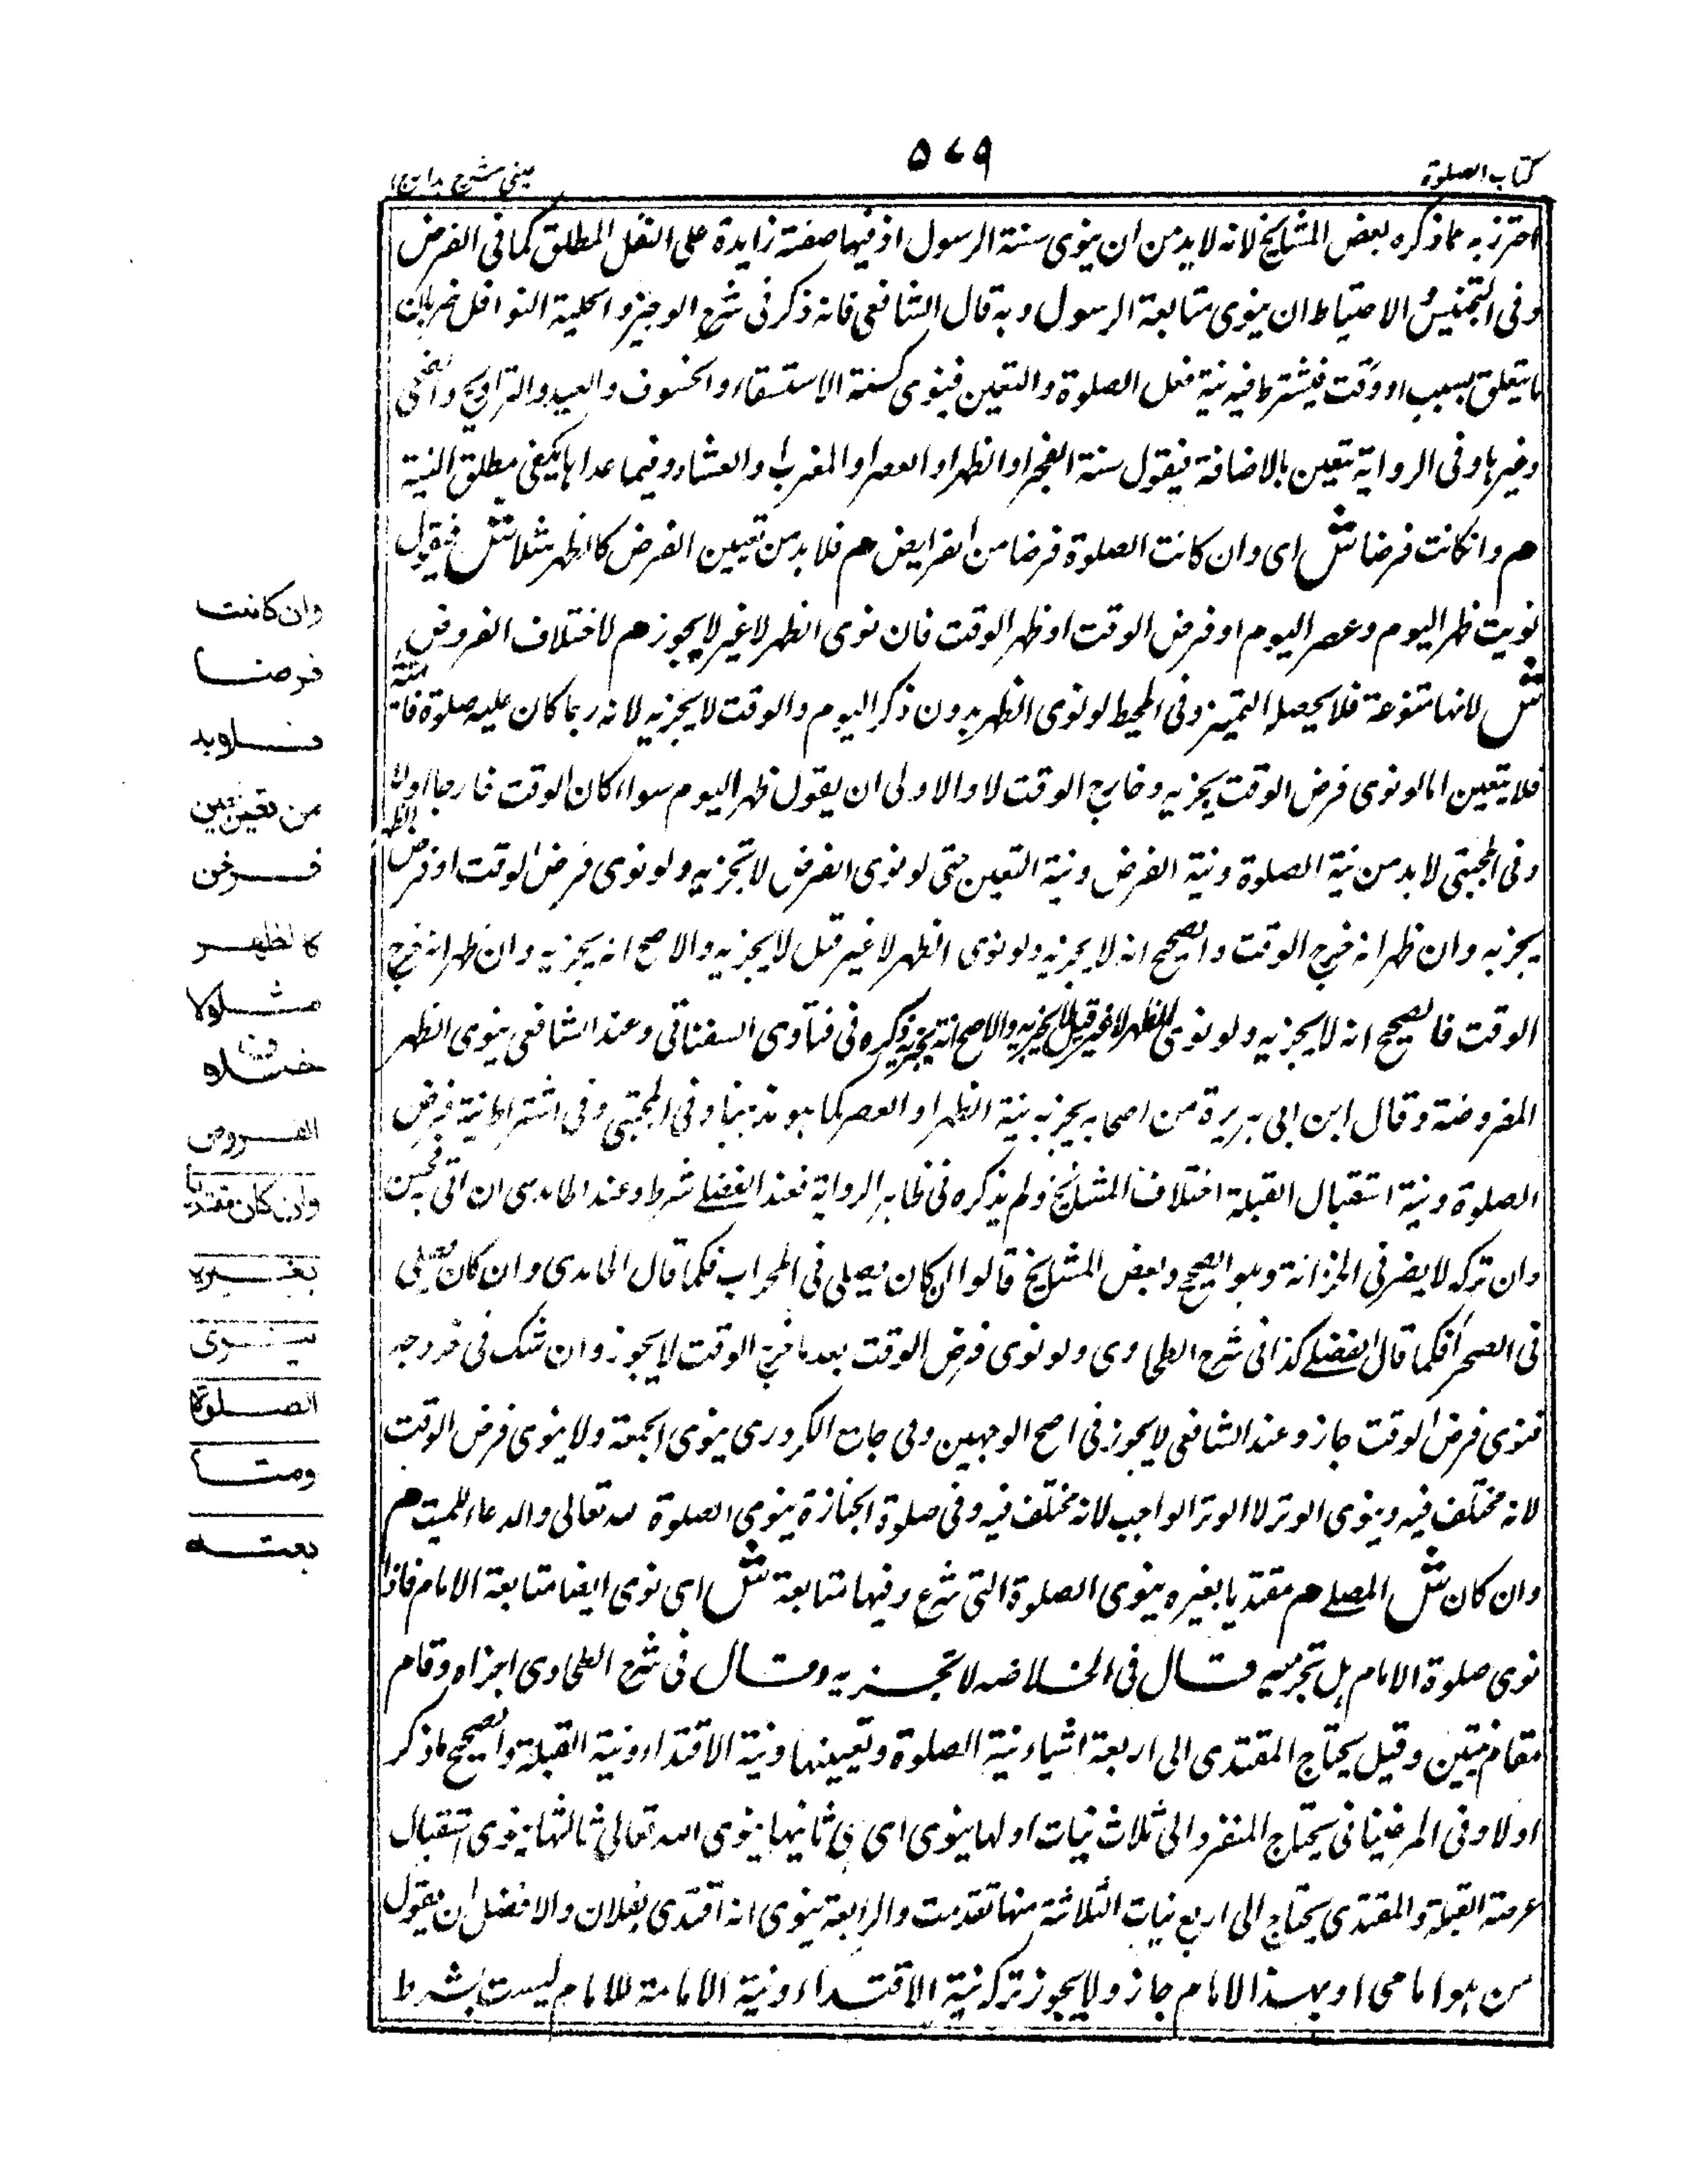 كتاب الصلوة
٥٧٩
عينى شرح هداية ج ١
احترز به عما ذكره بعض المشايخ لانه لابد من ان ينوى سنة الرسول اذ فيها صفة زايدة على النفل المطلق كما فى الفرض
وفى التجنيس والاحتياط ان ينوى متابعة الرسول وبه قال الشافعى فانه ذكر فى شرح الوجيز والحلية النوافل ضربان
ما يتعلق بسبب او وقت فيشترط فيه نية فعل الصلوة والتعين فينوى كسنة الاستسقاء والخسوف والعيد والتراويح والضحى
وغيرها وفى الرواية تتعين بالاضافة فيقول سنة الفجر او الظهر او العصر او المغرب او العشاء وفيما عداها يكفى مطلق النية
هم وان كانت فرضا ش اى وان كانت الصلوة فرضا من الفرايض هم فلا بد من تعيين الفرض كالظهر مثلا ش فيقول
نويت ظهر اليوم وعصر اليوم او فرض الوقت او ظهر الوقت فان نوى الظهر لا غير لا يجوز هم لاختلاف الفروض
ش لانها متنوعة فلا يحصل التميز وفى المحيط لو نوى الظهر بدون ذكر اليوم والوقت لا يجزيه لانه ربما كان عليه صلوة فائتة
فلا يتعين اما لو نوى فرض الوقت يجزيه وخارج الوقت لا والاولى ان يقول ظهر اليوم سواء كان الوقت خارجا اولا
وفى المجتبى لابد من نية الصلوة ونية الفرض ونية التعين حتى لو نوى الفرض لا تجزيه ولو نوى فرض الوقت او فرض الظهر
يجزيه وان ظهر انه خرج الوقت والصحيح انه لا يجزيه ولو نوى الظهر لا غير قيل لا يجزيه والاصح انه يجزيه وان ظهر انه خرج
الوقت فالصحيح انه لا يجزيه ولو نوى الظهر لا غير قيل لا يجزيه والاصح انه يجزيه ذكره فى فتاوى السغناقى وعند الشافعى ينوى الظهر
المفروضة وقال ابن ابى هريرة من اصحابه يجزيه بنية الظهر او العصر كما هو مذهبنا وفى المجتبى وفى اشتراط نية فرض
الصلوة ونية استقبال القبلة اختلاف المشايخ ولم يذكره فى ظاهر الرواية فعند الفضلى شرط وعند الحامدى ان اتى به فحسن
وان تركه لا يضر فى الخزانة وهو الصحيح وبعض المشايخ قالوا ان كان يصلى فى المحراب فكما قال الحامدى وان كان يصلى
فى الصحرا فكما قال الفضلى كذا فى شرح الطحاوى ولو نوى فرض الوقت بعد ما خرج الوقت لا يجوز وان شك فى خروجه
فنوى فرض الوقت جاز وعند الشافعى لا يجوز فى اصح الوجهين وفى جامع الكردرى ينوى الجمعة ولا ينوى فرض الوقت
لانه مختلف فيه وينوى الوتر لا الوتر الواجب لانه مختلف فيه وفى صلوة الجنازة ينوى الصلوة لله تعالى والدعاء للميت هم
وان كان ش المصلى هم مقتديا بغيره ينوى الصلوة التى شرع فيها ومتابعة ش اى نوى ايضا متابعة الامام فاذا
نوى صلوة الامام هل تجزيه قال فى الخلاصه لا تجزيه وقال فى شرح الطحاوى اجزاه وقام
مقام نيتين وقيل يحتاج المقتدى الى اربعة اشياء نية الصلوة وتعيينها ونية الاقتداء ونية القبلة والصحيح ما ذكر
اولا وفى المرغينانى يحتاج المنفرد الى ثلاث نيات اولها ينوى اى هى ثانيها ينوى الله تعالى ثالثها ينوى استقبال
عرصة القبلة والمقتدى يحتاج الى اربع نيات الثلاثة منها تقدمت والرابعة ينوى انه اقتدى بفلان والافضل ان يقول
من هو امامى او بهذا الامام جاز ولا يجوز ترك نية الاقتداء ونية الامامة للامام ليست بشرط
وان كانت
فرضا
فلا بد
من تعيين
فرض
كالظهر
مثلا
لاختلاف
الفروض
وان كان مقتديا
بغيره
ينوى
الصلوة
ومتا
بعته